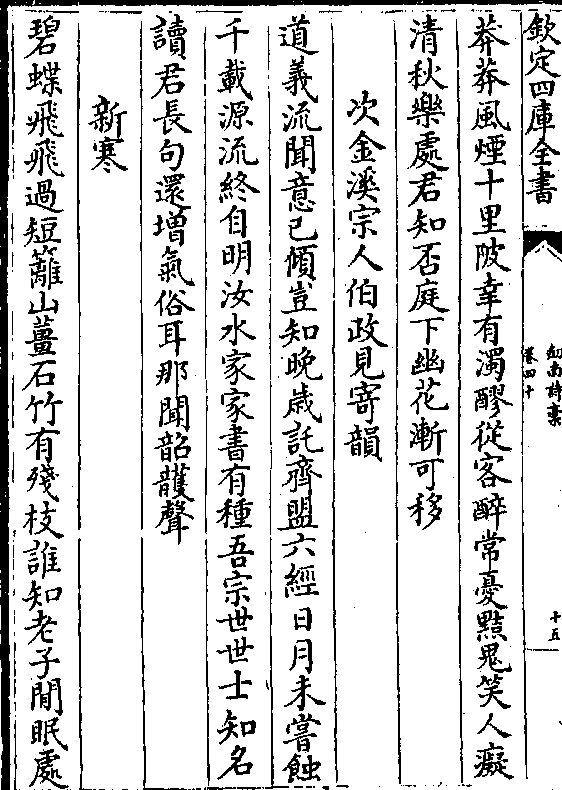 欽定四庫全書
劍南詩藁
卷四十
十五
莽莽風煙十里陂幸有濁醪從客醉常憂黠鬼笑人癡
清秋樂處君知否庭下幽花漸可移
次金溪宗人伯政見寄韻
道義流聞意已傾豈知晚歲託齊盟六經日月未嘗蝕
千載源流終自明汝水家家書有種吾宗世世士知名
讀君長句還增氣俗耳那聞韶頀聲
新寒
碧蝶飛飛過短籬山薑石竹有殘枝誰知老子閒眠處